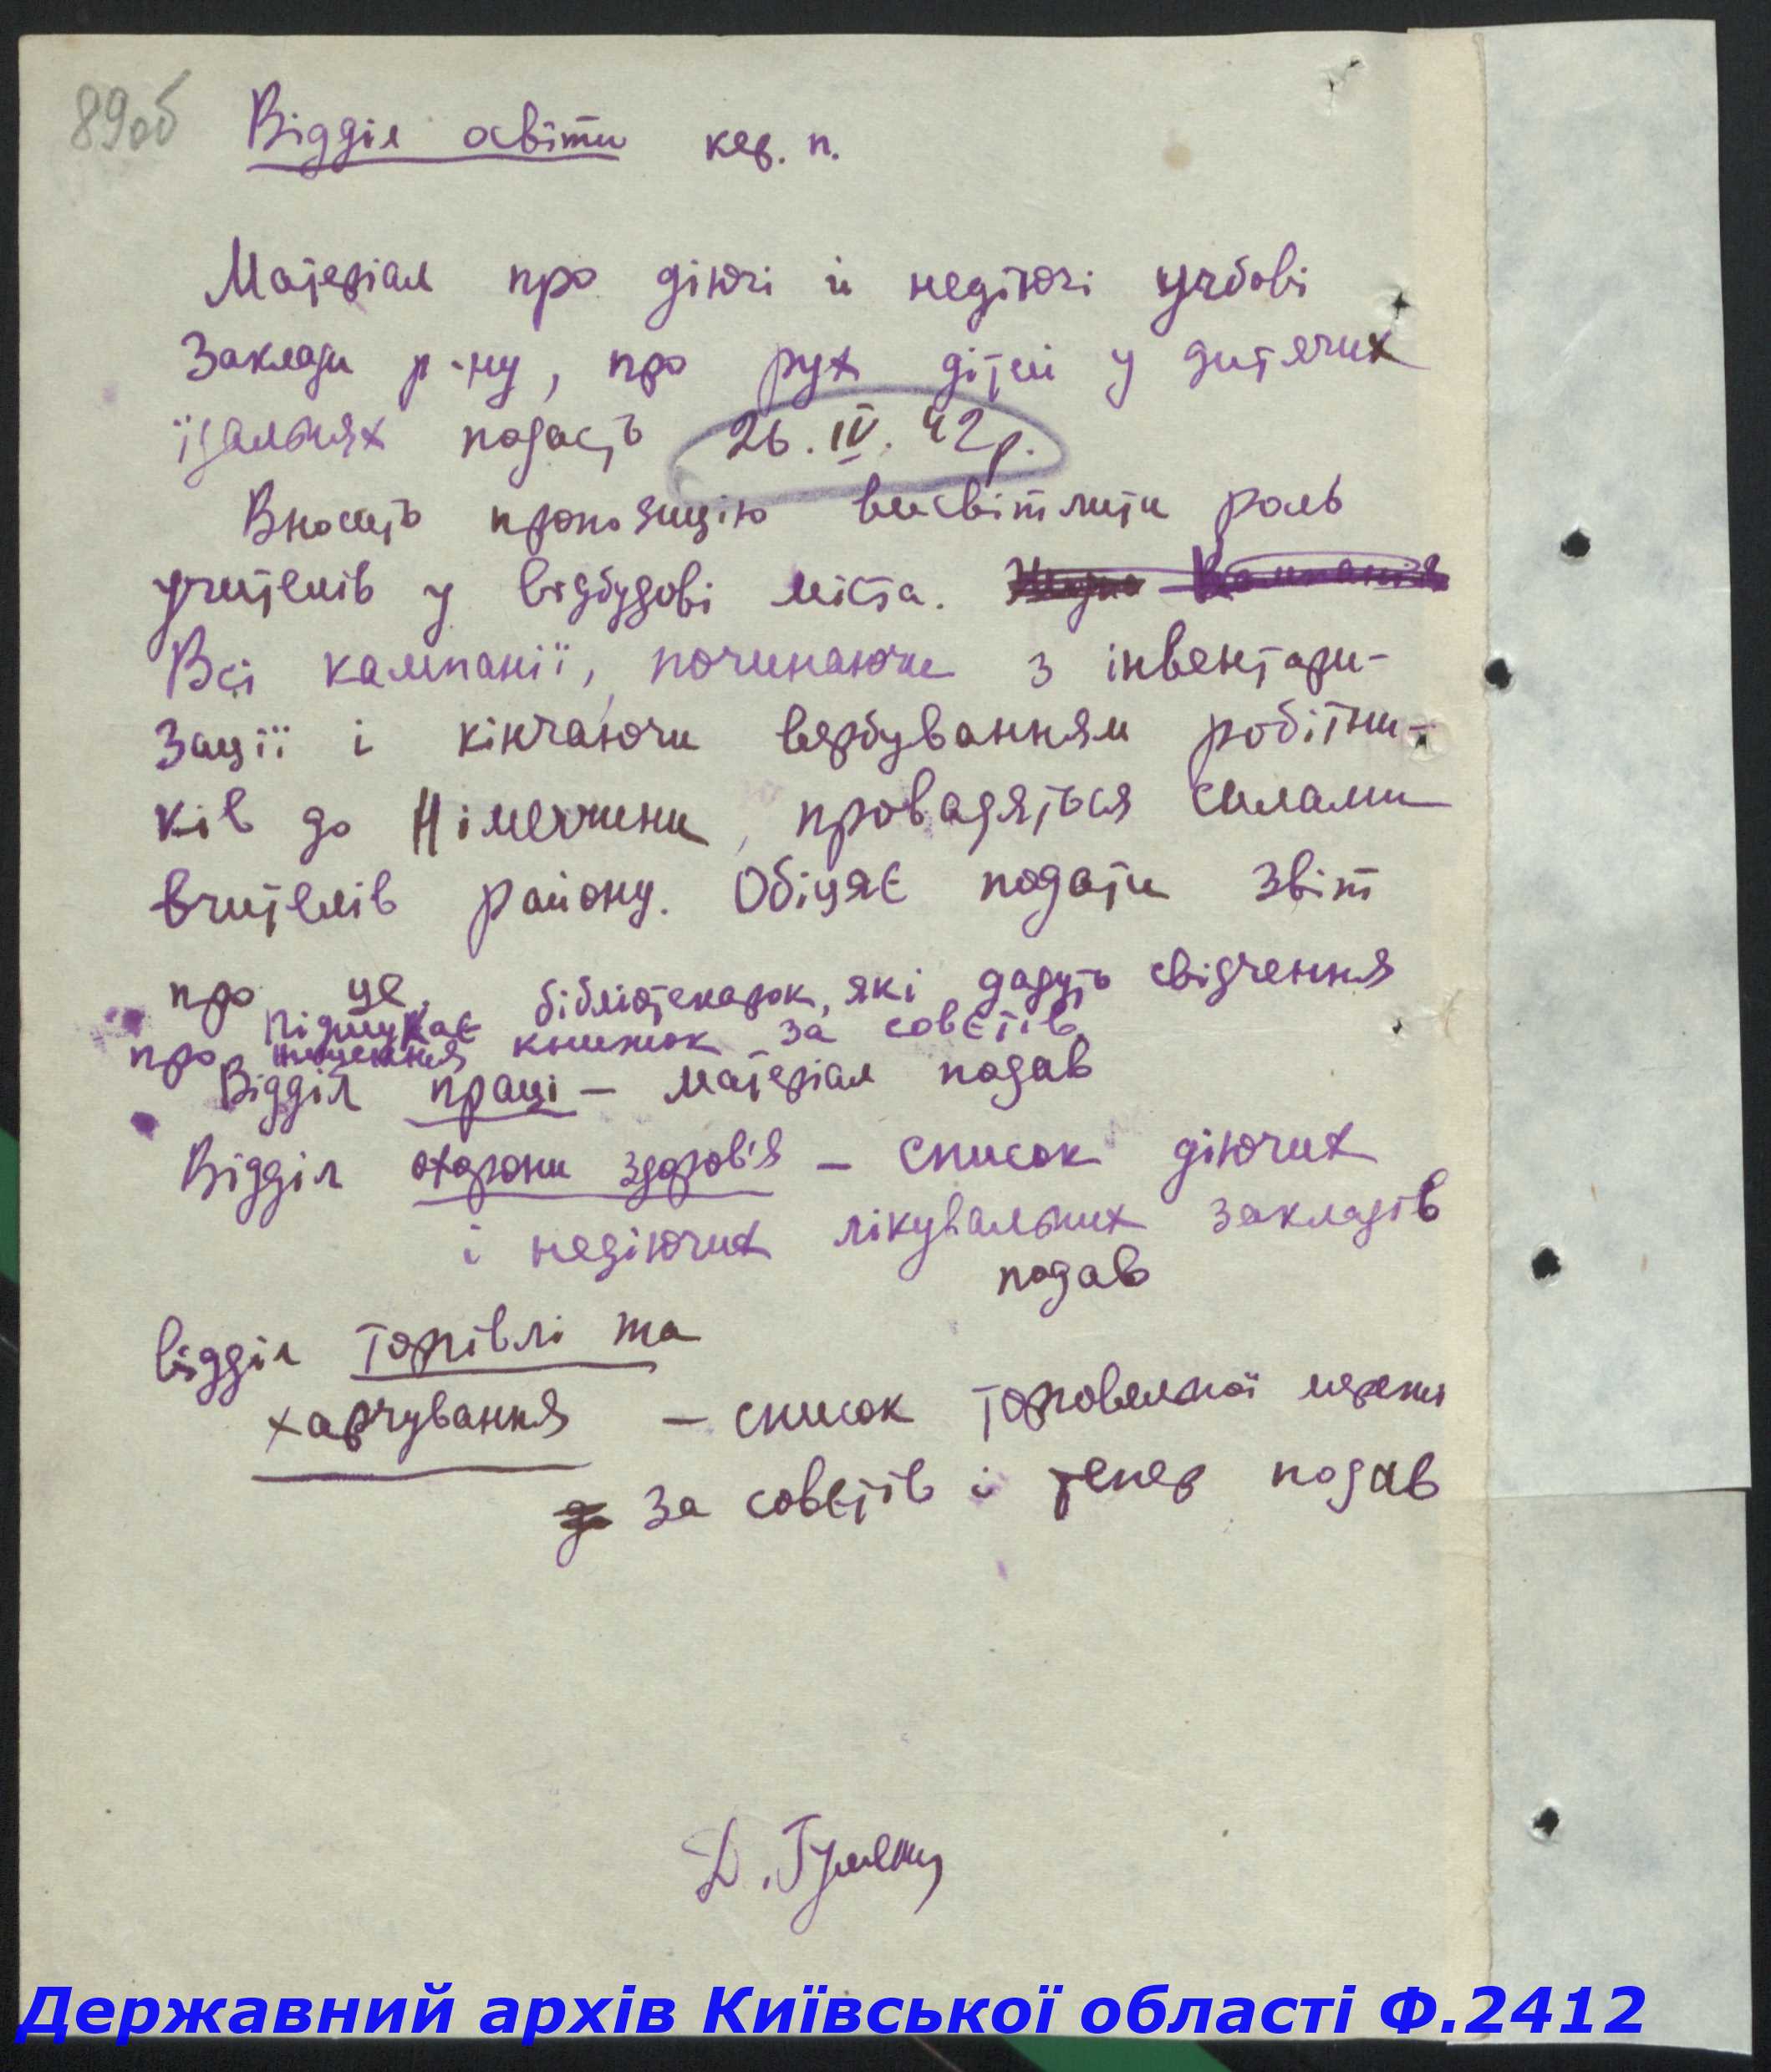 89об
Відділ освіти кер. п.
Матеріал про діючі й недіючі учбові
заклади р-ну, про рух дітей у дитячих
їдальнях подасть 26.IV.42р.
Вносить пропозицію висвітлити роль
учителів у відбудові міста.
Всі кампанії, починаючи з інвентари-
зації і кінчаючи вербуванням робітни-
ків до Німеччини, провадяться силами
вчителів району. Обіцяє подати звіт
про це.
Підшукає бібліотекарок, які дадуть свідчення
про нищення книжок за совєтів.
Відділ праці – матеріал подав
Відділ охорони здоров'я – список діючих
і недіючих лікувальних закладів
подав
відділ торгівлі та
харчування – список торговельної мережі
за совєтів і тепер подав
Державний архів Київської області Ф.2412